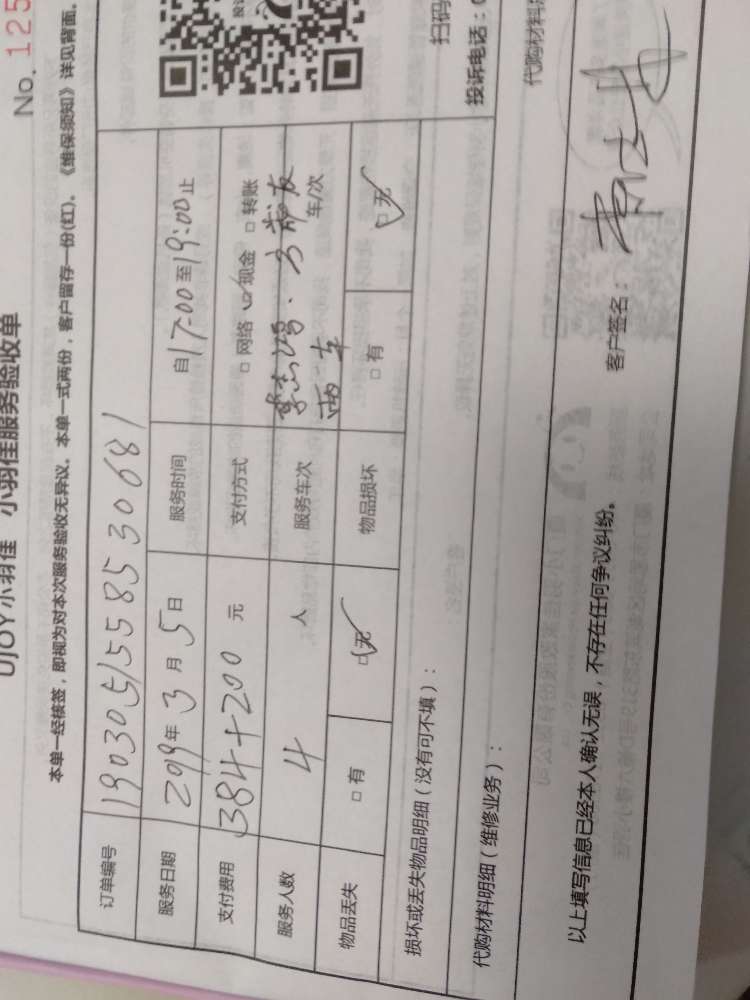 No. 125
UJOY小羽佳 小羽佳服务验收单
本单一经核签，即视为对本次服务验收无异议。本单一式两份，客户留存一份(红)。《维保须知》详见背面。
订单编号 190305155853068​1
服务日期 2019年3月5日 服务时间 自17:00至19:00止
支付费用 384+200 元 支付方式 □网络 ☑现金 □转账
服务人数 4 人 服务车次 两车 车/次
物品丢失 □有 ☑无 物品损坏 □有 ☑无
损坏或丢失物品明细（没有可不填）：
代购材料明细（维修业务）：
以上填写信息已经本人确认无误，不存在任何争议纠纷。 客户签名：
扫码
投诉电话：0
代购材料